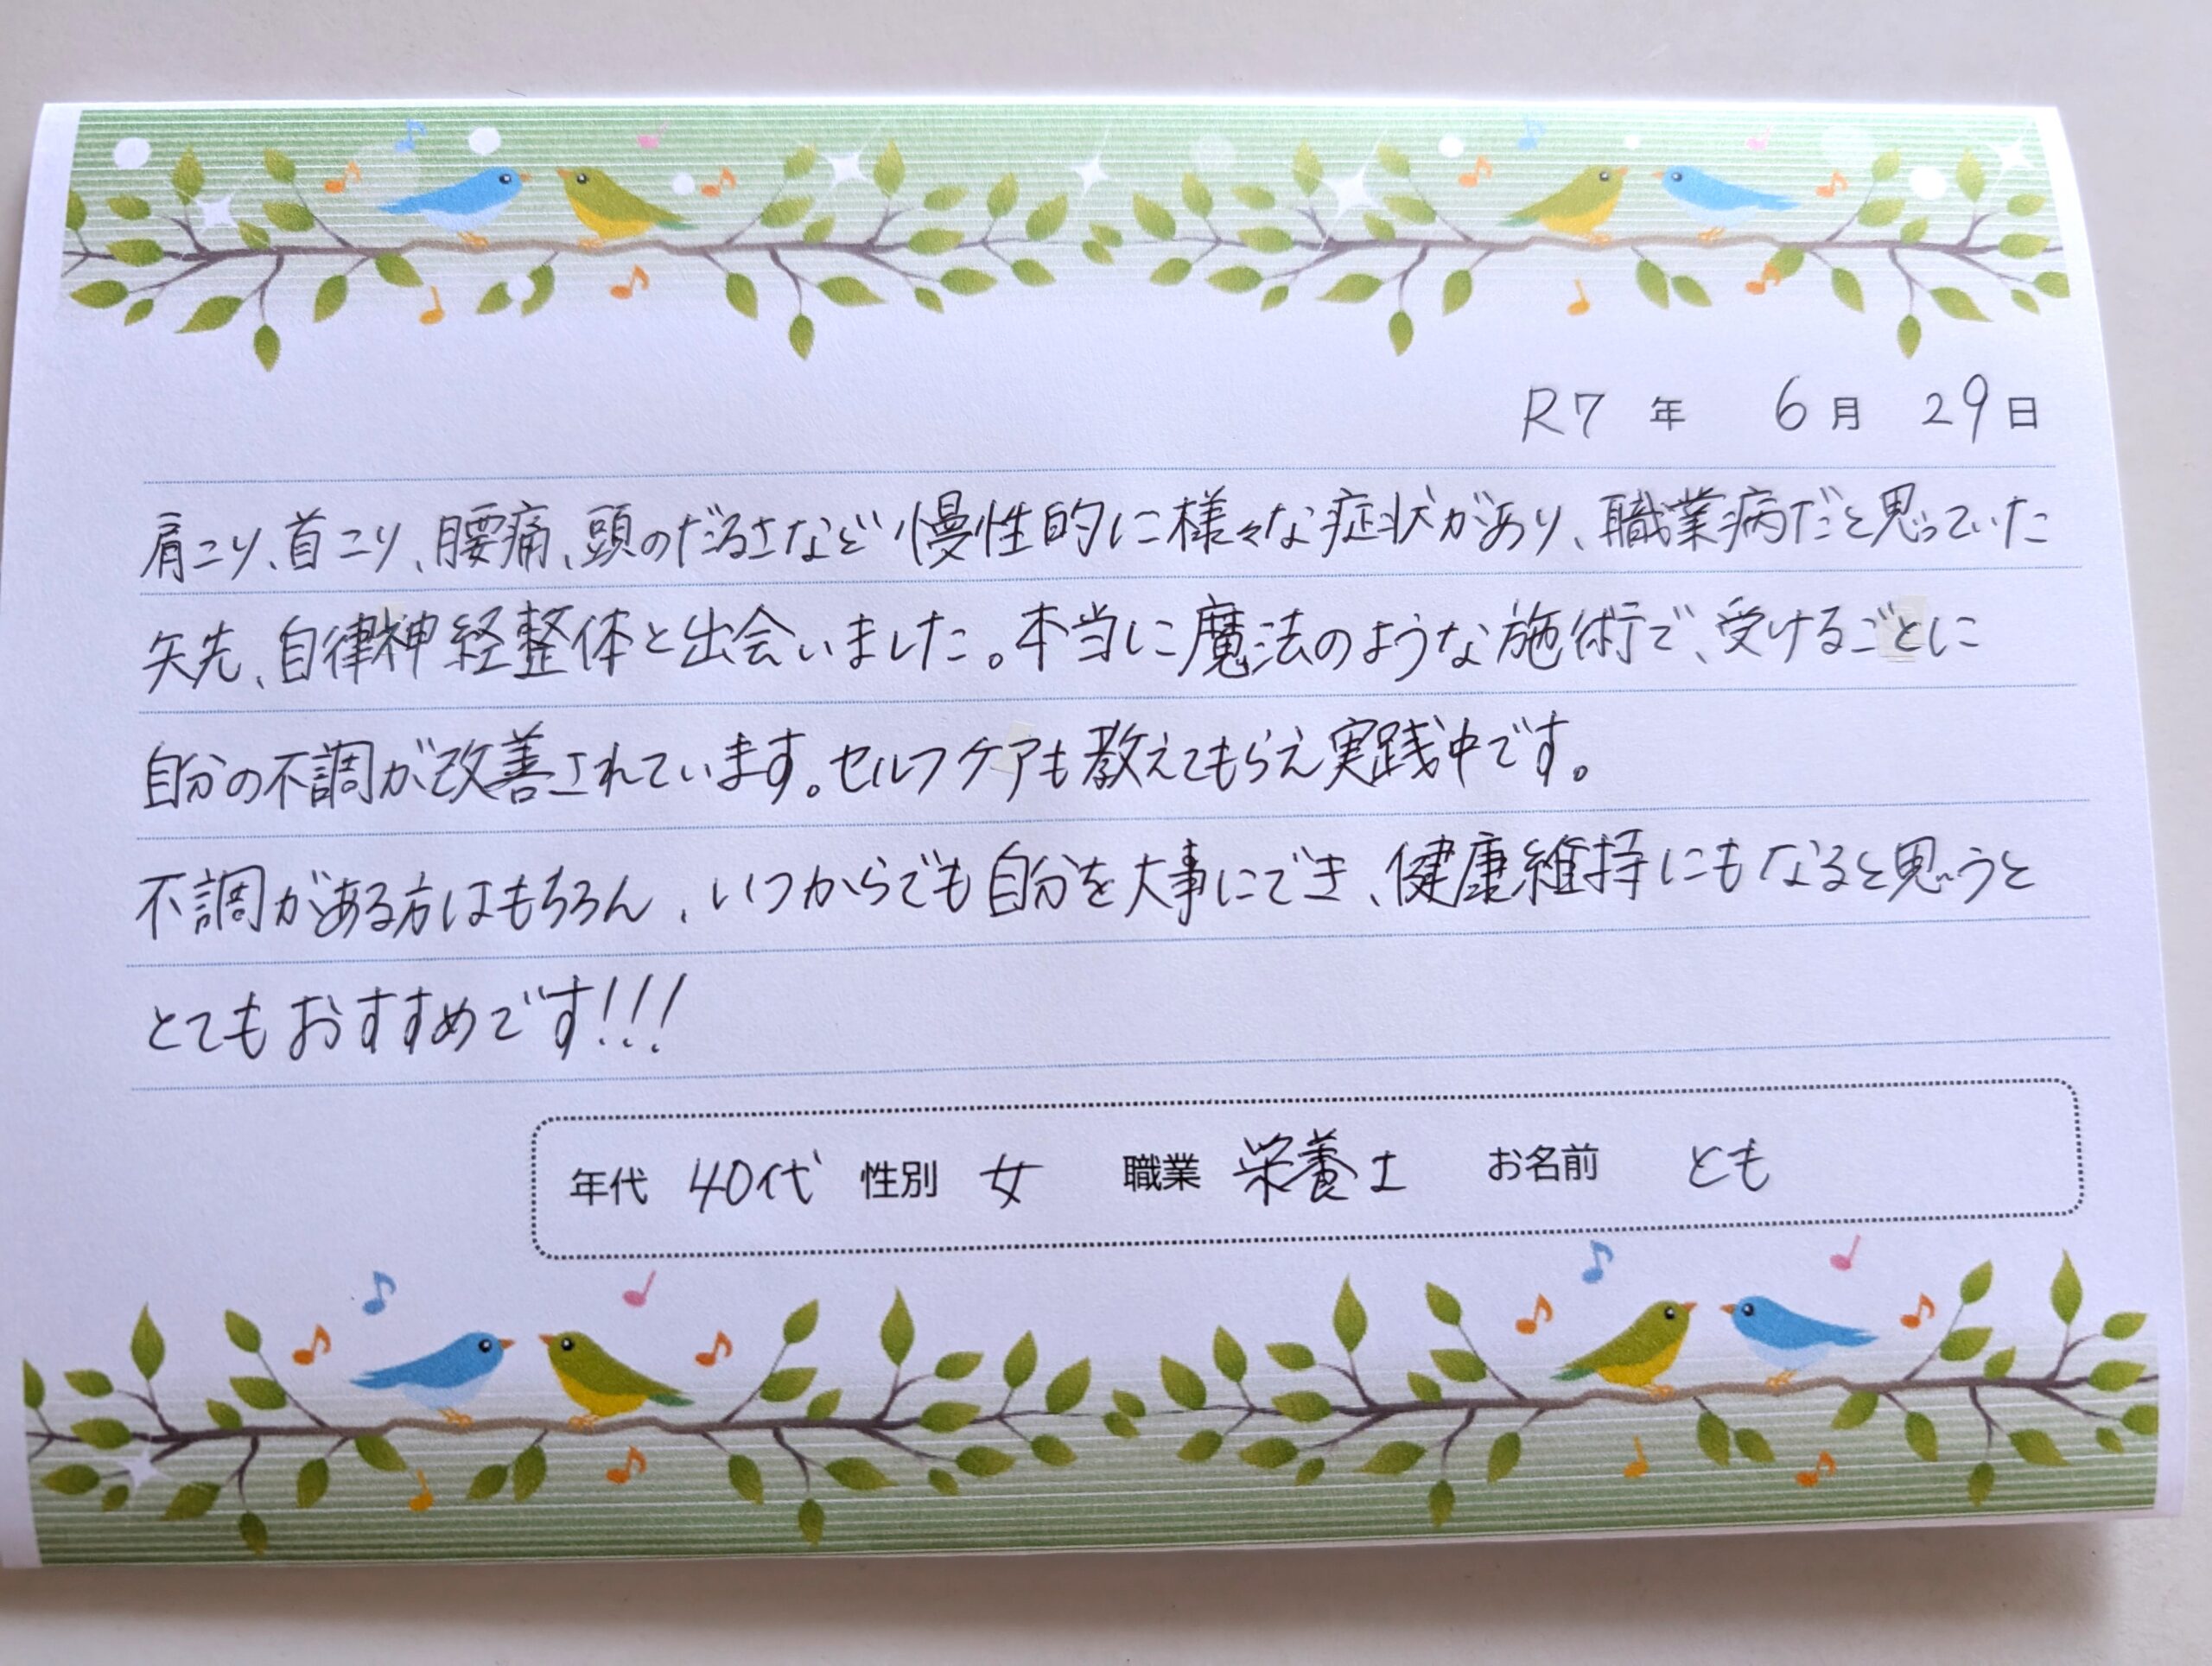 R7 年 6 月 29 日
肩こり、首こり、腰痛、頭のだるさなど慢性的に様々な症状があり、職業病だと思っていた
矢先、自律神経整体と出会いました。本当に魔法のような施術で、受けるごとに
自分の不調が改善されています。セルフケアも教えてもらえ実践中です。
不調がある方はもちろん、いつからでも自分を大事にでき、健康維持にもなると思うと
とてもおすすめです!!!
年代 40代 性別 女 職業 栄養士 お名前 とも